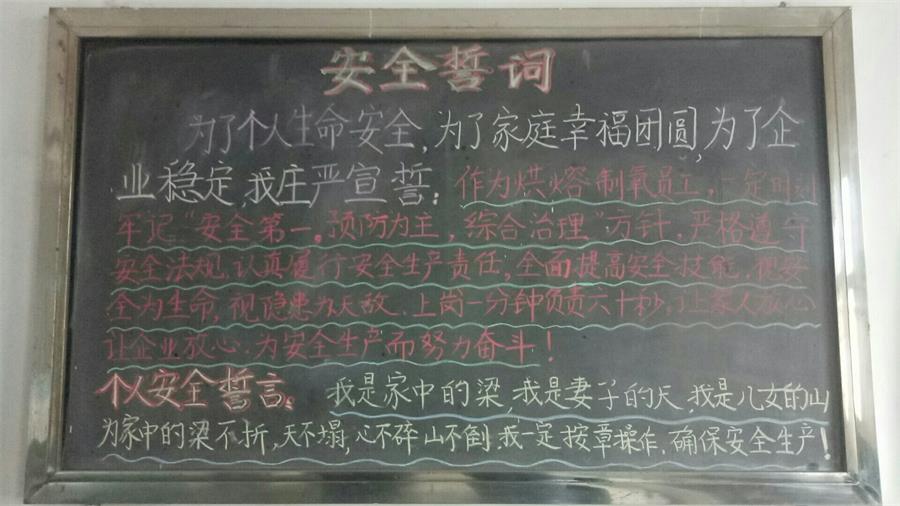 安全誓词
为了个人生命安全,为了家庭幸福团圆,为了企
业稳定,我庄严宣誓:作为烘熔制氧员工,一定时刻
牢记“安全第一。预防为主,综合治理”方针,严格遵守
安全法规,认真履行安全生产责任,全面提高安全技能.视安
全为生命,视隐患为天敌.上岗一分钟负责六十秒,让家人放心
让企业放心.为安全生产而努力奋斗!
个人安全誓言: 我是家中的梁,我是妻子的天,我是儿女的山
为家中的梁不折,天不塌,心不碎山不倒.我一定按章操作.确保安全生产!